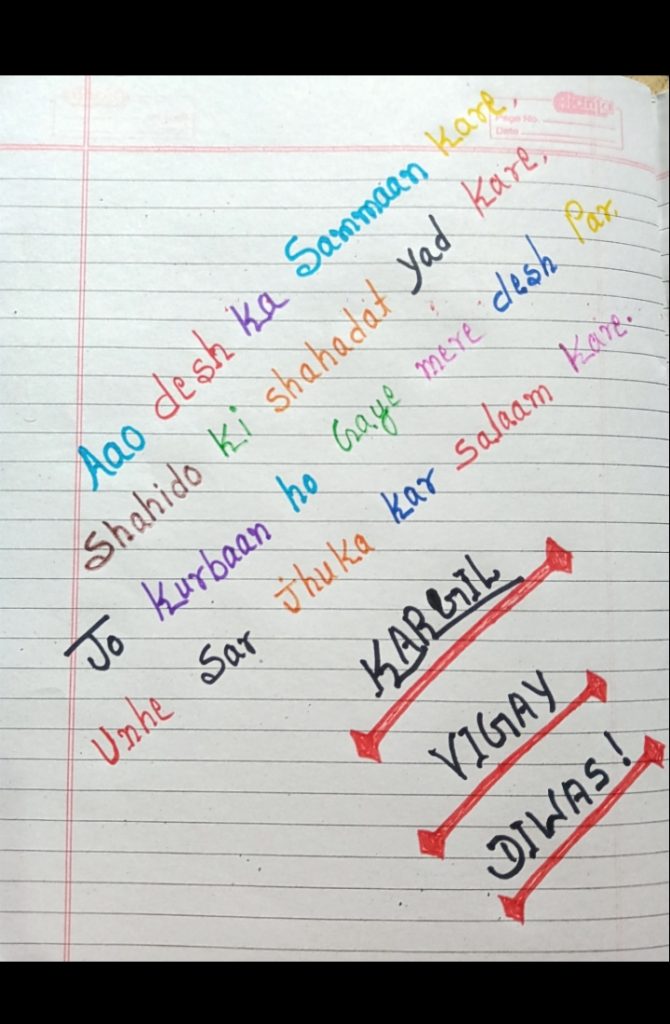 Page No.
Date
Aao desh ka Sammaan kare,
Shahido ki shahadat yad kare,
Jo kurbaan ho Gaye mere desh Par.
Unhe Sar jhuka kar salaam kare.
KARGIL
VIGAY
DIWAS!